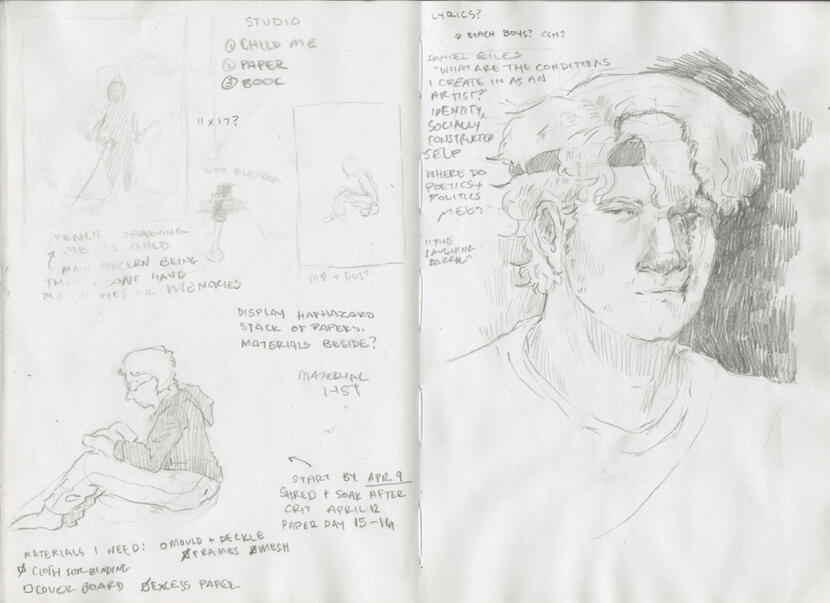 STUDIO
① CHILD ME
② PAPER
③ BOOK
11 X 17?
PENCIL DRAWING
ME AS CHILD
MAIN CONCERN BEING
THAT I DON'T HAVE
PICS OR MEMORIES
ME + GUS?
DISPLAY HAPHAZARD
STACK OF PAPERS.
MATERIALS BESIDE?
MATERIAL
LIST
START BY APR 9
SHRED + SOAK AFTER
CRIT APRIL 12
PAPER DAY 15-16
MATERIALS I NEED: MOULD + DECKLE
FRAMES MESH
CLOTH FOR BINDING
COVER BOARD EXCESS PAPER
LYRICS?
→ BEACH BOYS? CSH?
DANIEL GILES
"WHAT ARE THE CONDITIONS
I CREATE IN AS AN
ARTIST?"
IDENTITY,
SOCIALLY
CONSTRUCTED
SELF
WHERE DO
POETICS +
POLITICS
MEET?
"THE
LAUGHING
BARREL"